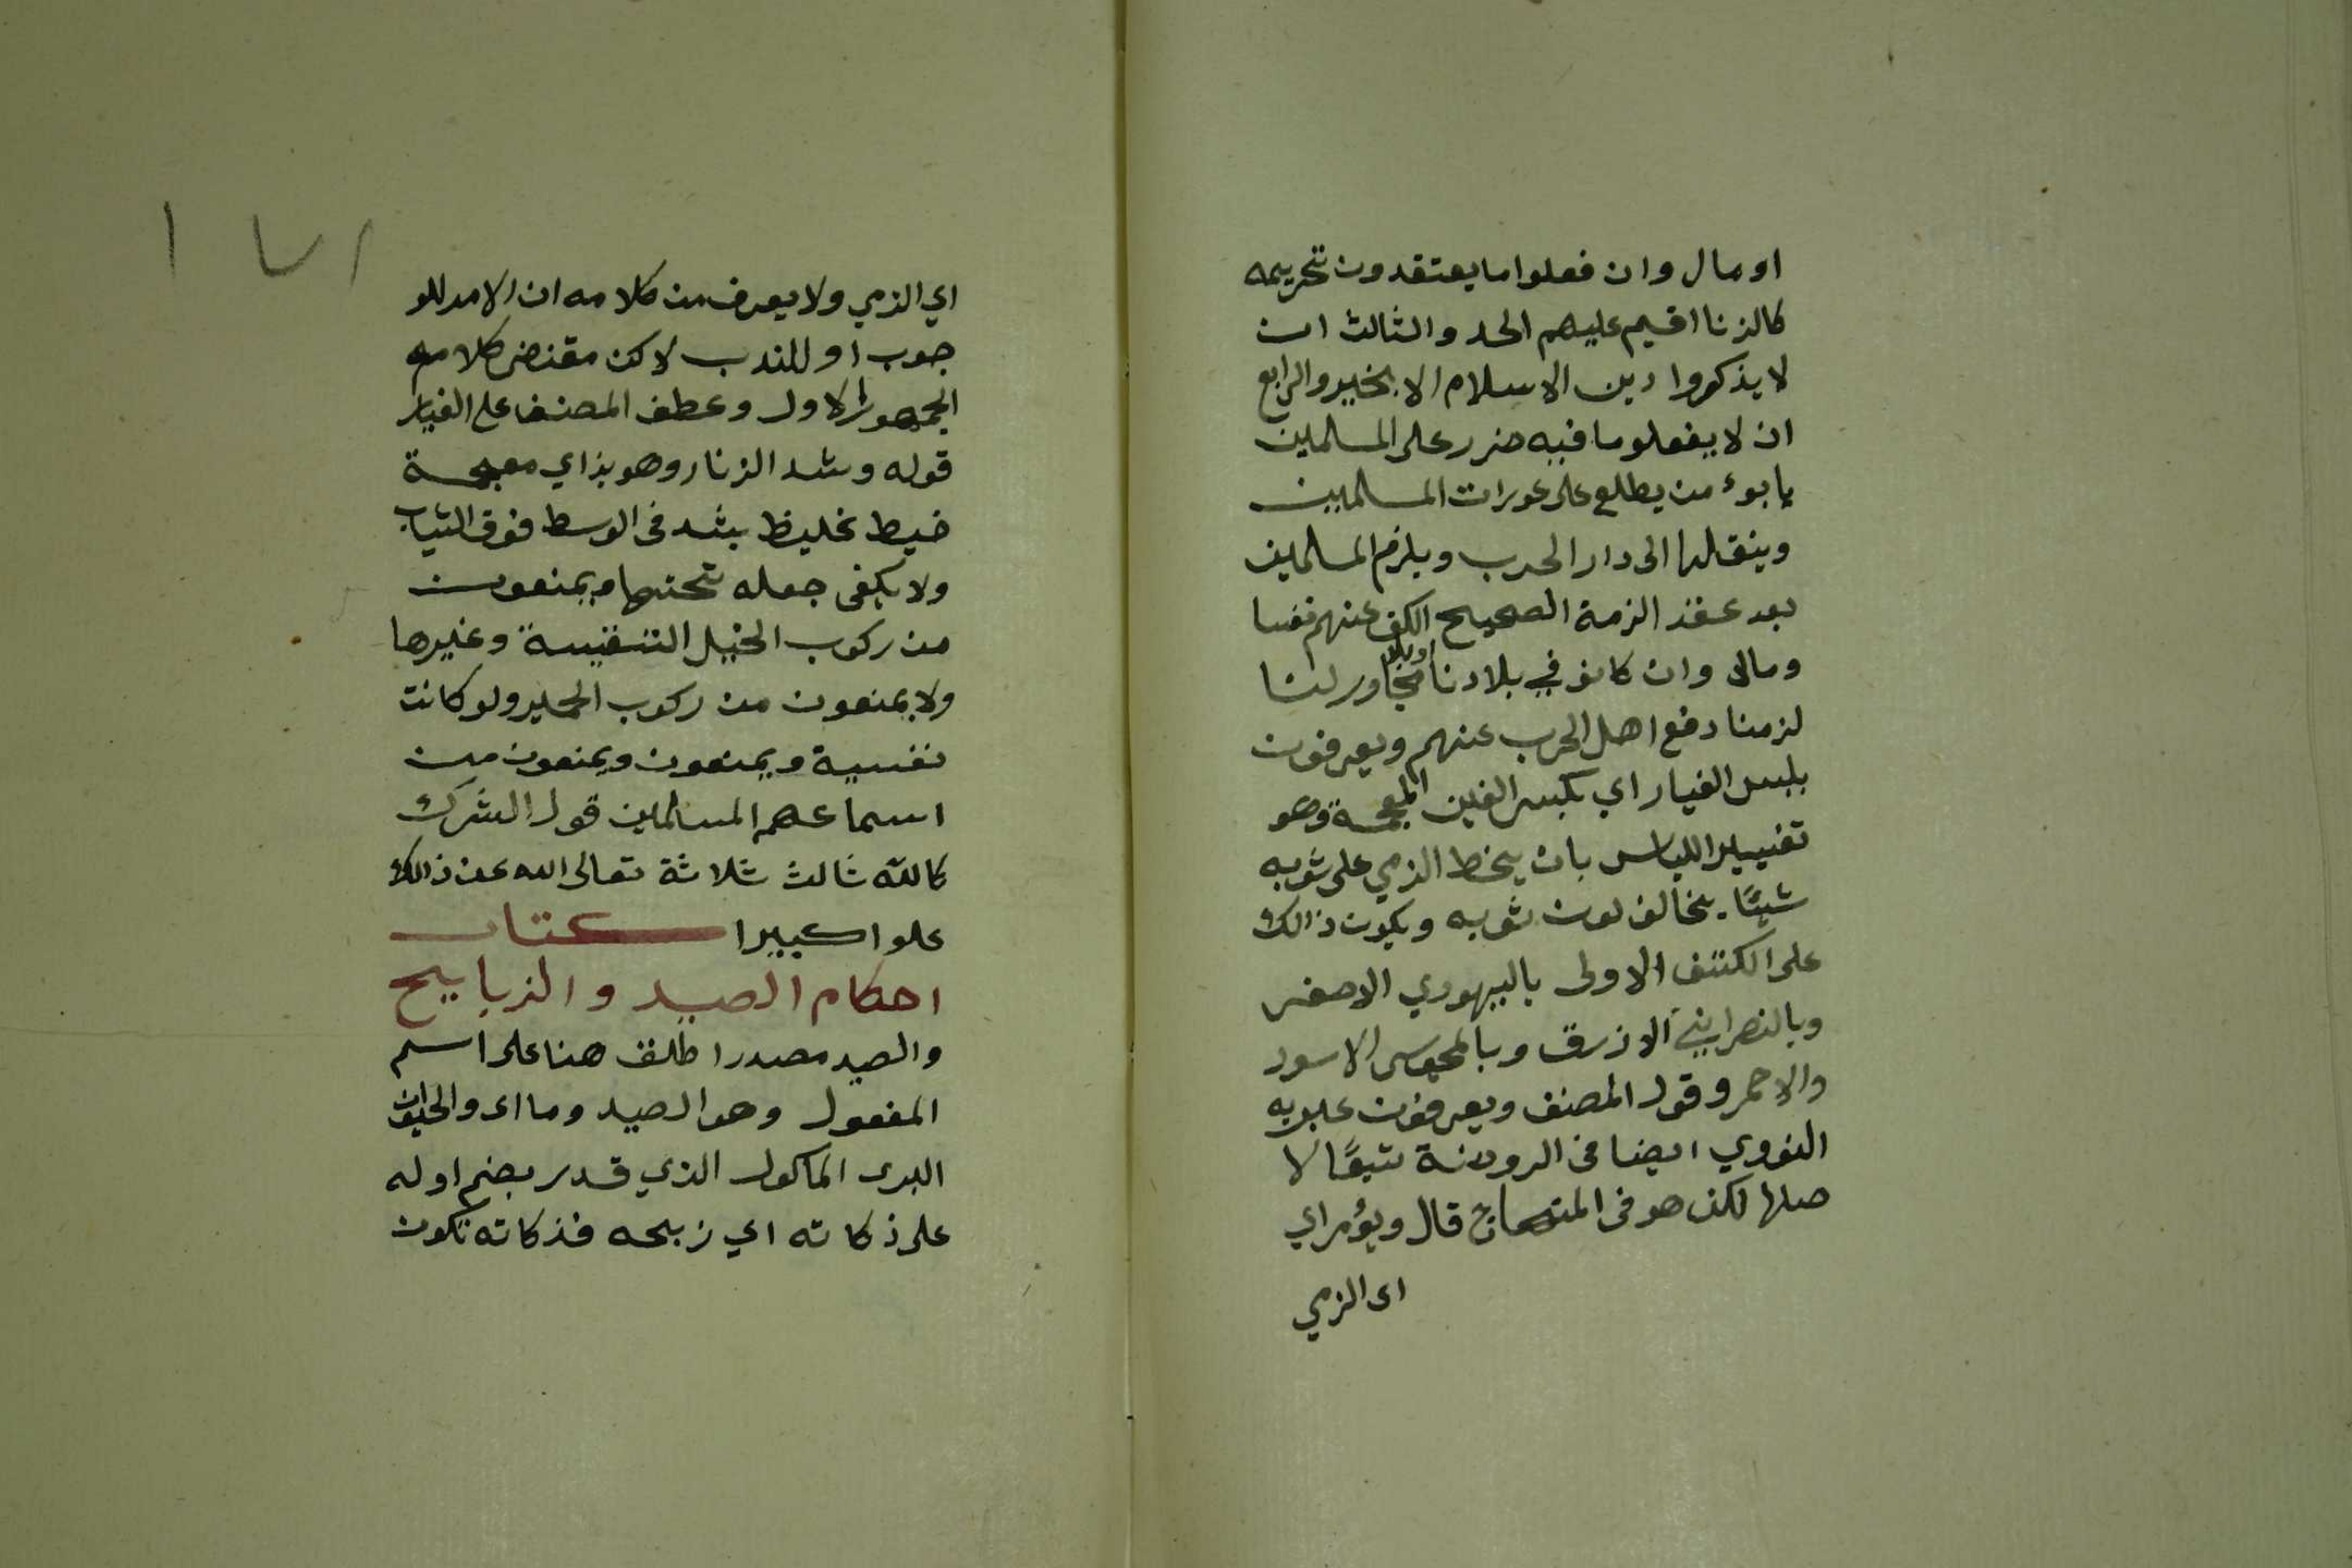 او مال وان فعلوا ما يعتقدون تحريمه
كالزنا اقيم عليهم الحد والثالث ان
لا يذكروا دين الاسلام الا بخير والرابع
ان لا يفعلو ما فيه ضرر على المسلمين
يابوء من يطلع على عورات المسلمين
وينقلها الى دار الحرب ويلزم المسلمين
بعد عقد الزمة الصحيح الكف عنهم نفسا
ومالا وان كانو في بلادنا او بلد مجاور لنا
لزمنا دفع اهل الحرب عنهم ويعرفون
بلبس الغيار اي بكسر الغين المعجمة وهو
تغيير اللباس بان يخط الزمي على ثوبه
شيئًا يخالف لون ثوبه ويكون ذالك
على الكتف الاولى باليهودي الاصفر
وبالنصراني الازرق وبالمجوسي الاسود
والاحمر وقول المصنف ويعرفون عبر به
النووي ايضا في الروضة تبعًا لا
صلها لكن هو في المنهاج قال ويؤمر اي
اى الزمي
١٧١
اي الزمي ولا يعرف من كلامه ان الامر للو
جوب او للندب لاكن مقتضى كلامه
الجمهور الاول وعطف المصنف على الغيار
قوله وشد الزنار وهو بزاي معجمة
خيط غليظ يشد في الوسط فوق الثياب
ولا يكفى جعله تحتها ويمنعون
من ركوب الخيل النفيسة وغيرها
ولا يمنعون من ركوب الحمير ولو كانت
نفسية ويمنعون ويمنعون من
اسماعهم المسلمين قول الشرك
كالله ثالث ثلاثة تعالى الله عن ذالك
علوا كبيرا كتاب
احكام الصيد والزبايح
والصيد مصدر اطلق هنا على اسم
المفعول وهو الصيد وما اى والحيوان
البرى الماكول الذي قدر بضم اوله
على ذكاته اي زبحه فذكاته تكون